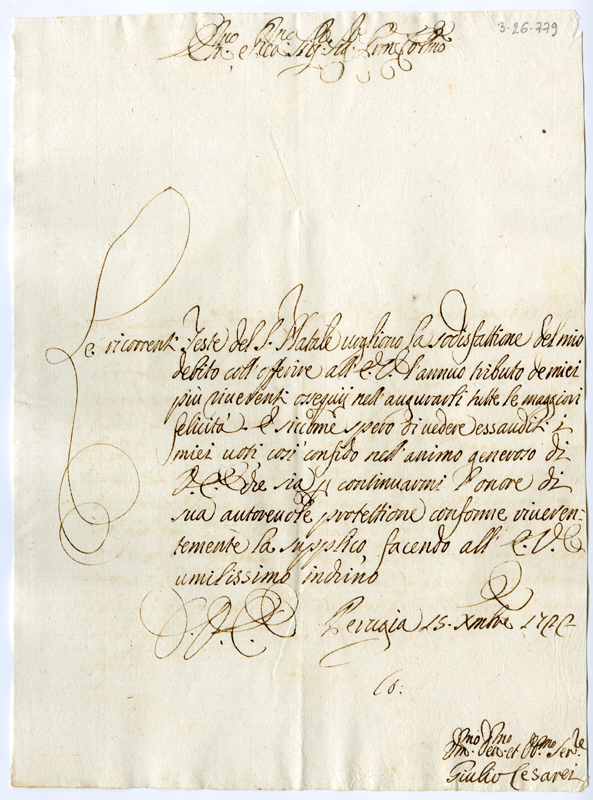 3-26-779
Em.mo e R.mo Sig.re Sig.re Pron Col.mo
Le ricorrenti Feste del S. Natale vogliono la sodisfattione del mio
debito coll'offerire all'E.V. l'annuo tributo de miei
più riverenti ossequij nell'augurarli tutte le maggiori
felicità. E siccome spero di vedere essauditi i
miei voti così confido nell'animo generoso di
V.E. che sia p continuarmi l'onore di
sua autorevole protettione conforme riveren-
temente la supplico, facendo all'E.V.
umilissimo inchino
D. V. E. Perugia 15. Xmbre
Co:
Um.mo Dev.mo et Obb.mo Ser.re
Giulio Cesarei